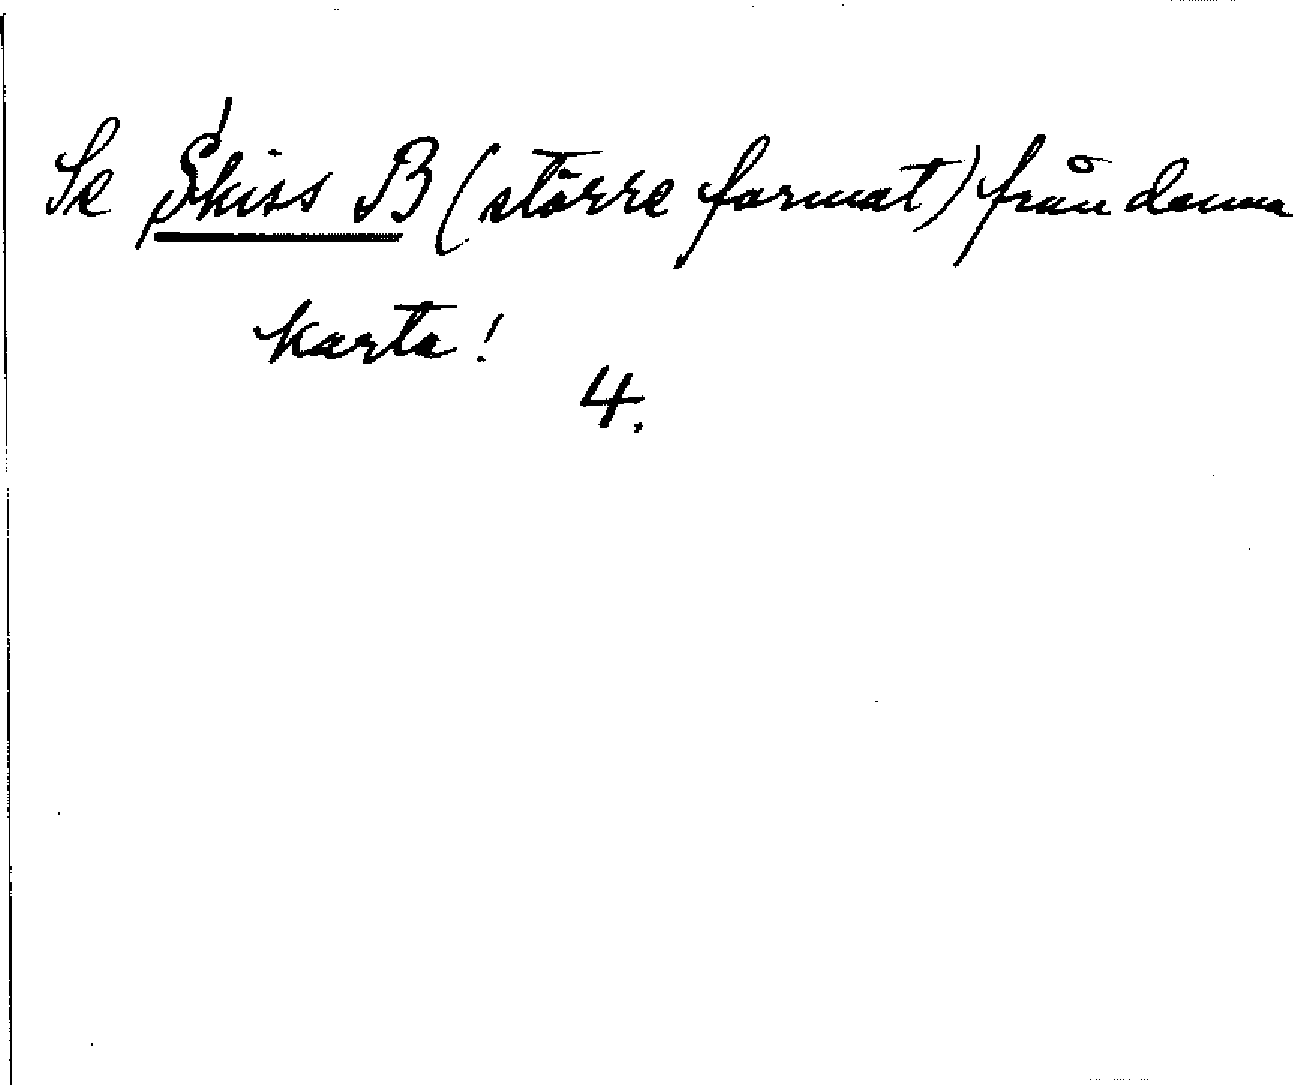 Se Skiss B (större format) från denna
karta!
4.